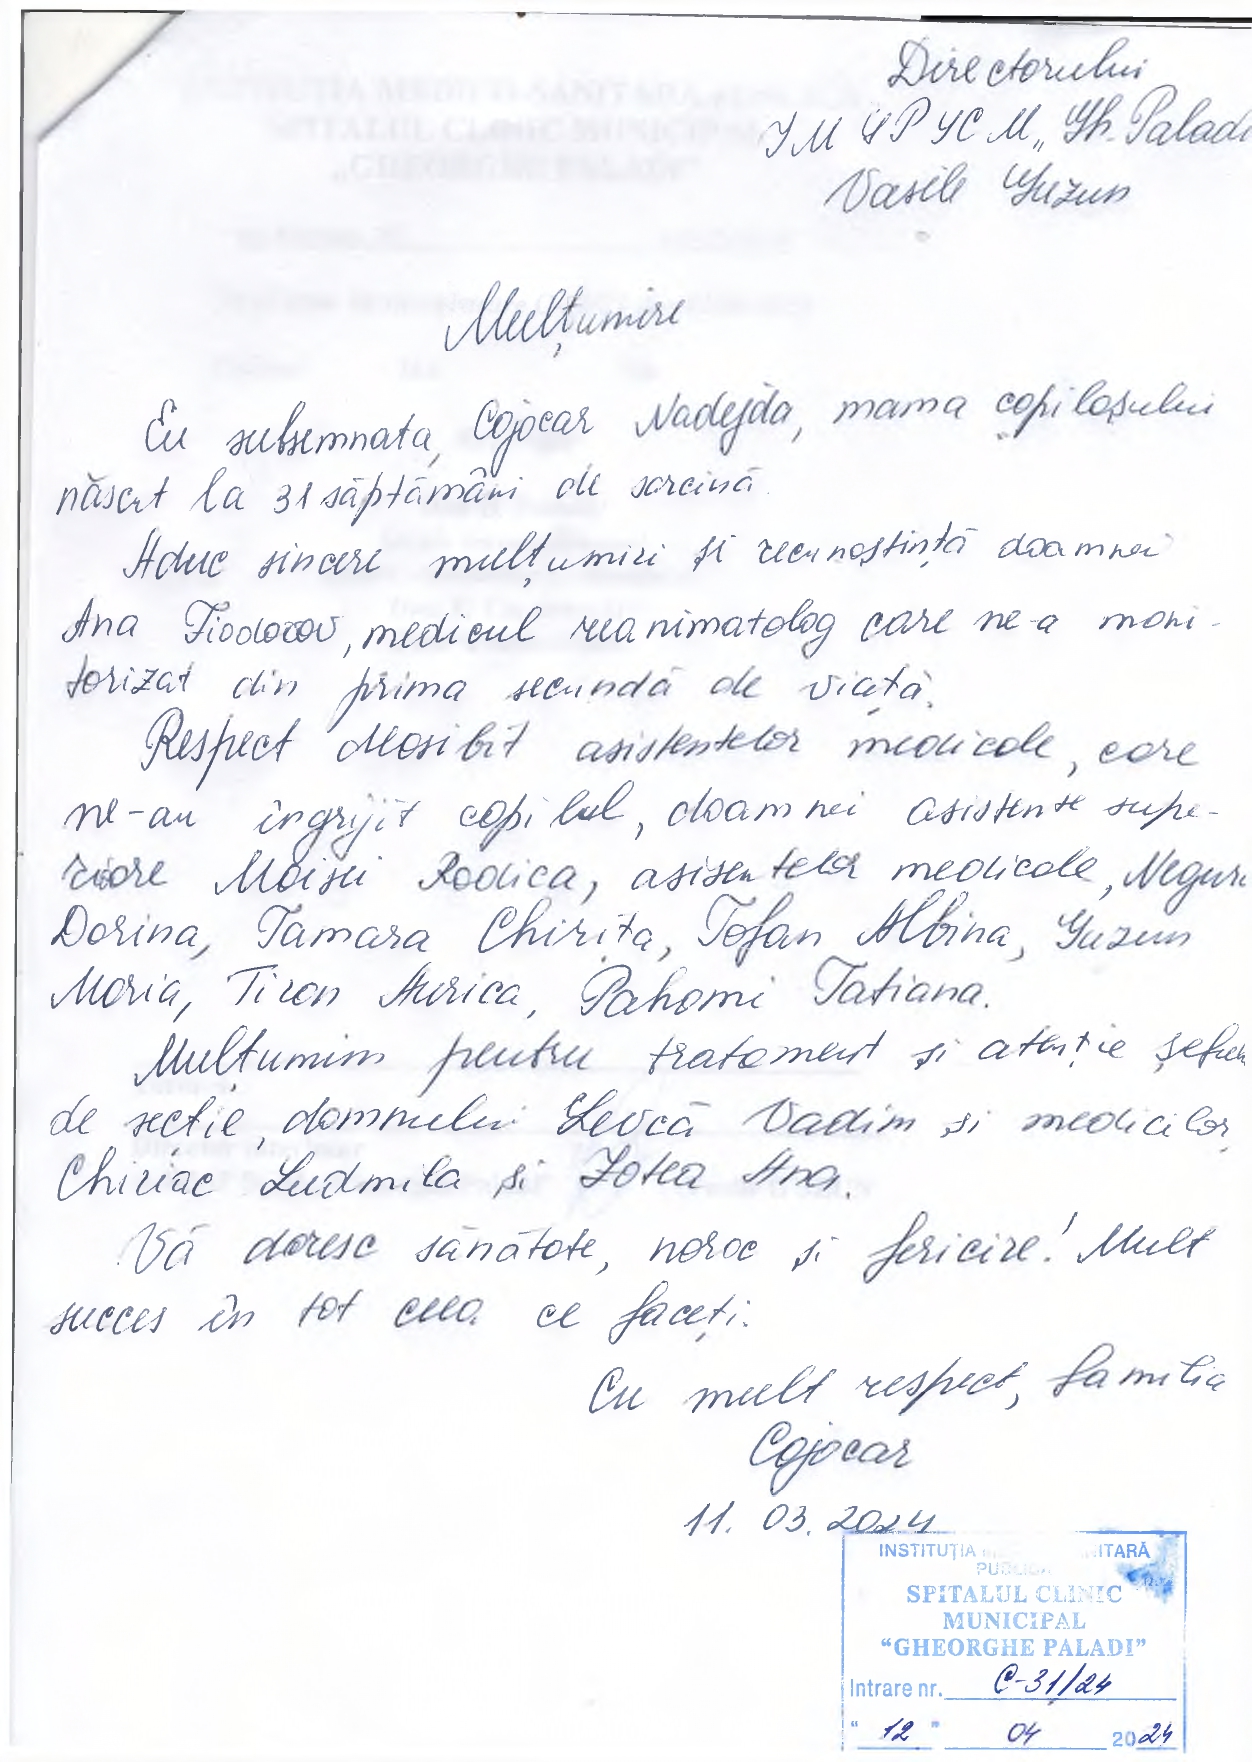 Directorului
IMSP SCM „Gh. Paladi
Vasile Guzun
Mulțumire
Eu subsemnata, Cojocar Nadejda, mama copilașului
născut la 31 săptămâni de sarcină.
Aduc sincere mulțumiri și recunoștință doamnei
Ana Fiodorov, medicul reanimatolog care ne-a moni-
torizat din prima secundă de viață.
Respect deosibit asistentelor medicale, care
ne-au îngrijit copilul, doamnei asistente supe-
rioare Moisei Rodica, asisentelor medicale, Negură
Dorina, Tamara Chirița, Tofan Albina, Guzun
Maria, Tiron Aurica, Pahomi Tatiana.
Mulțumim pentru tratament și atenție șefului
de secție, domnului Levcă Vadim și medicilor,
Chiriac Ludmila și Zotea Ana.
Vă doresc sănătate, noroc și fericire! Mult
succes în tot ceea ce faceți.
Cu mult respect, familia
Cojocar
11.03.2024
INSTITUȚIA
PUBLICĂ
SPITALUL CLINIC
MUNICIPAL
"GHEORGHE PALADI"
Intrare nr. C-31/24
"12" 04 2024